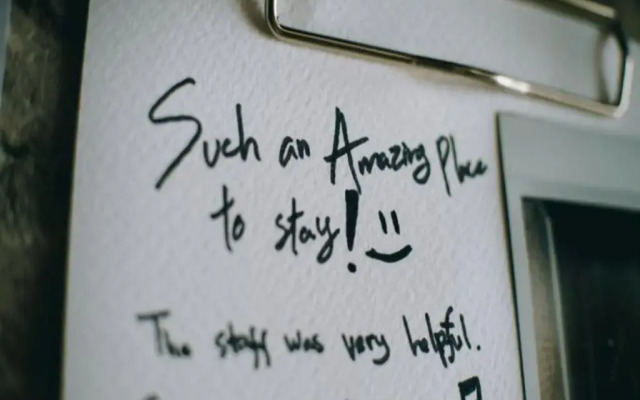 Such an Amazing Place
to stay!
The staff was very helpful.